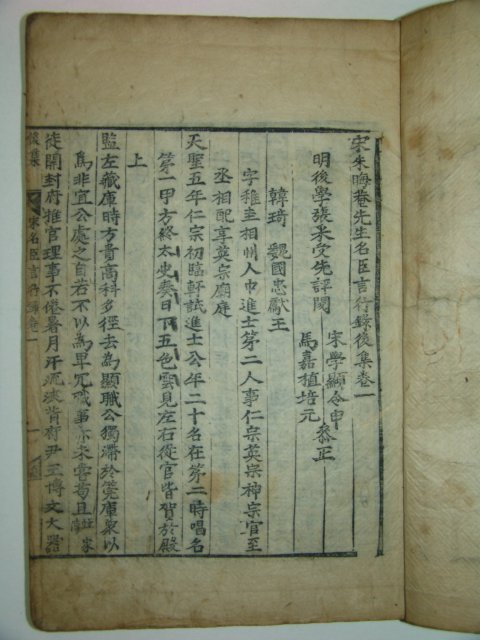 宋朱晦菴先生名臣言行錄後集卷一
明後學張采受先評閱
宋學顯令申
馬嘉植培元
叅正
韓琦 魏國忠獻王
字稚圭相州人中進士第二人事仁宗英宗神宗官至
丞相配享英宗廟庭
天聖五年仁宗初臨軒試進士公年二十名在第二時唱名
第一甲方終太史奏日下五色雲見左右從官皆賀於殿
上
監左藏庫時方貴高科多徑去為顯職公獨滯於筦庫衆以
為非宜公處之自若不以為卑冗職事亦未嘗苟且
家
徒開封府推官理事不倦暑月汗流浹背府尹王博文大器
後集
宋名臣言行錄卷一
一